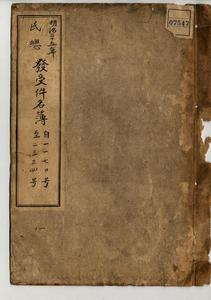 明治三十五年
民總 發受件名簿
自一一七〇号
至二三三四号
07547